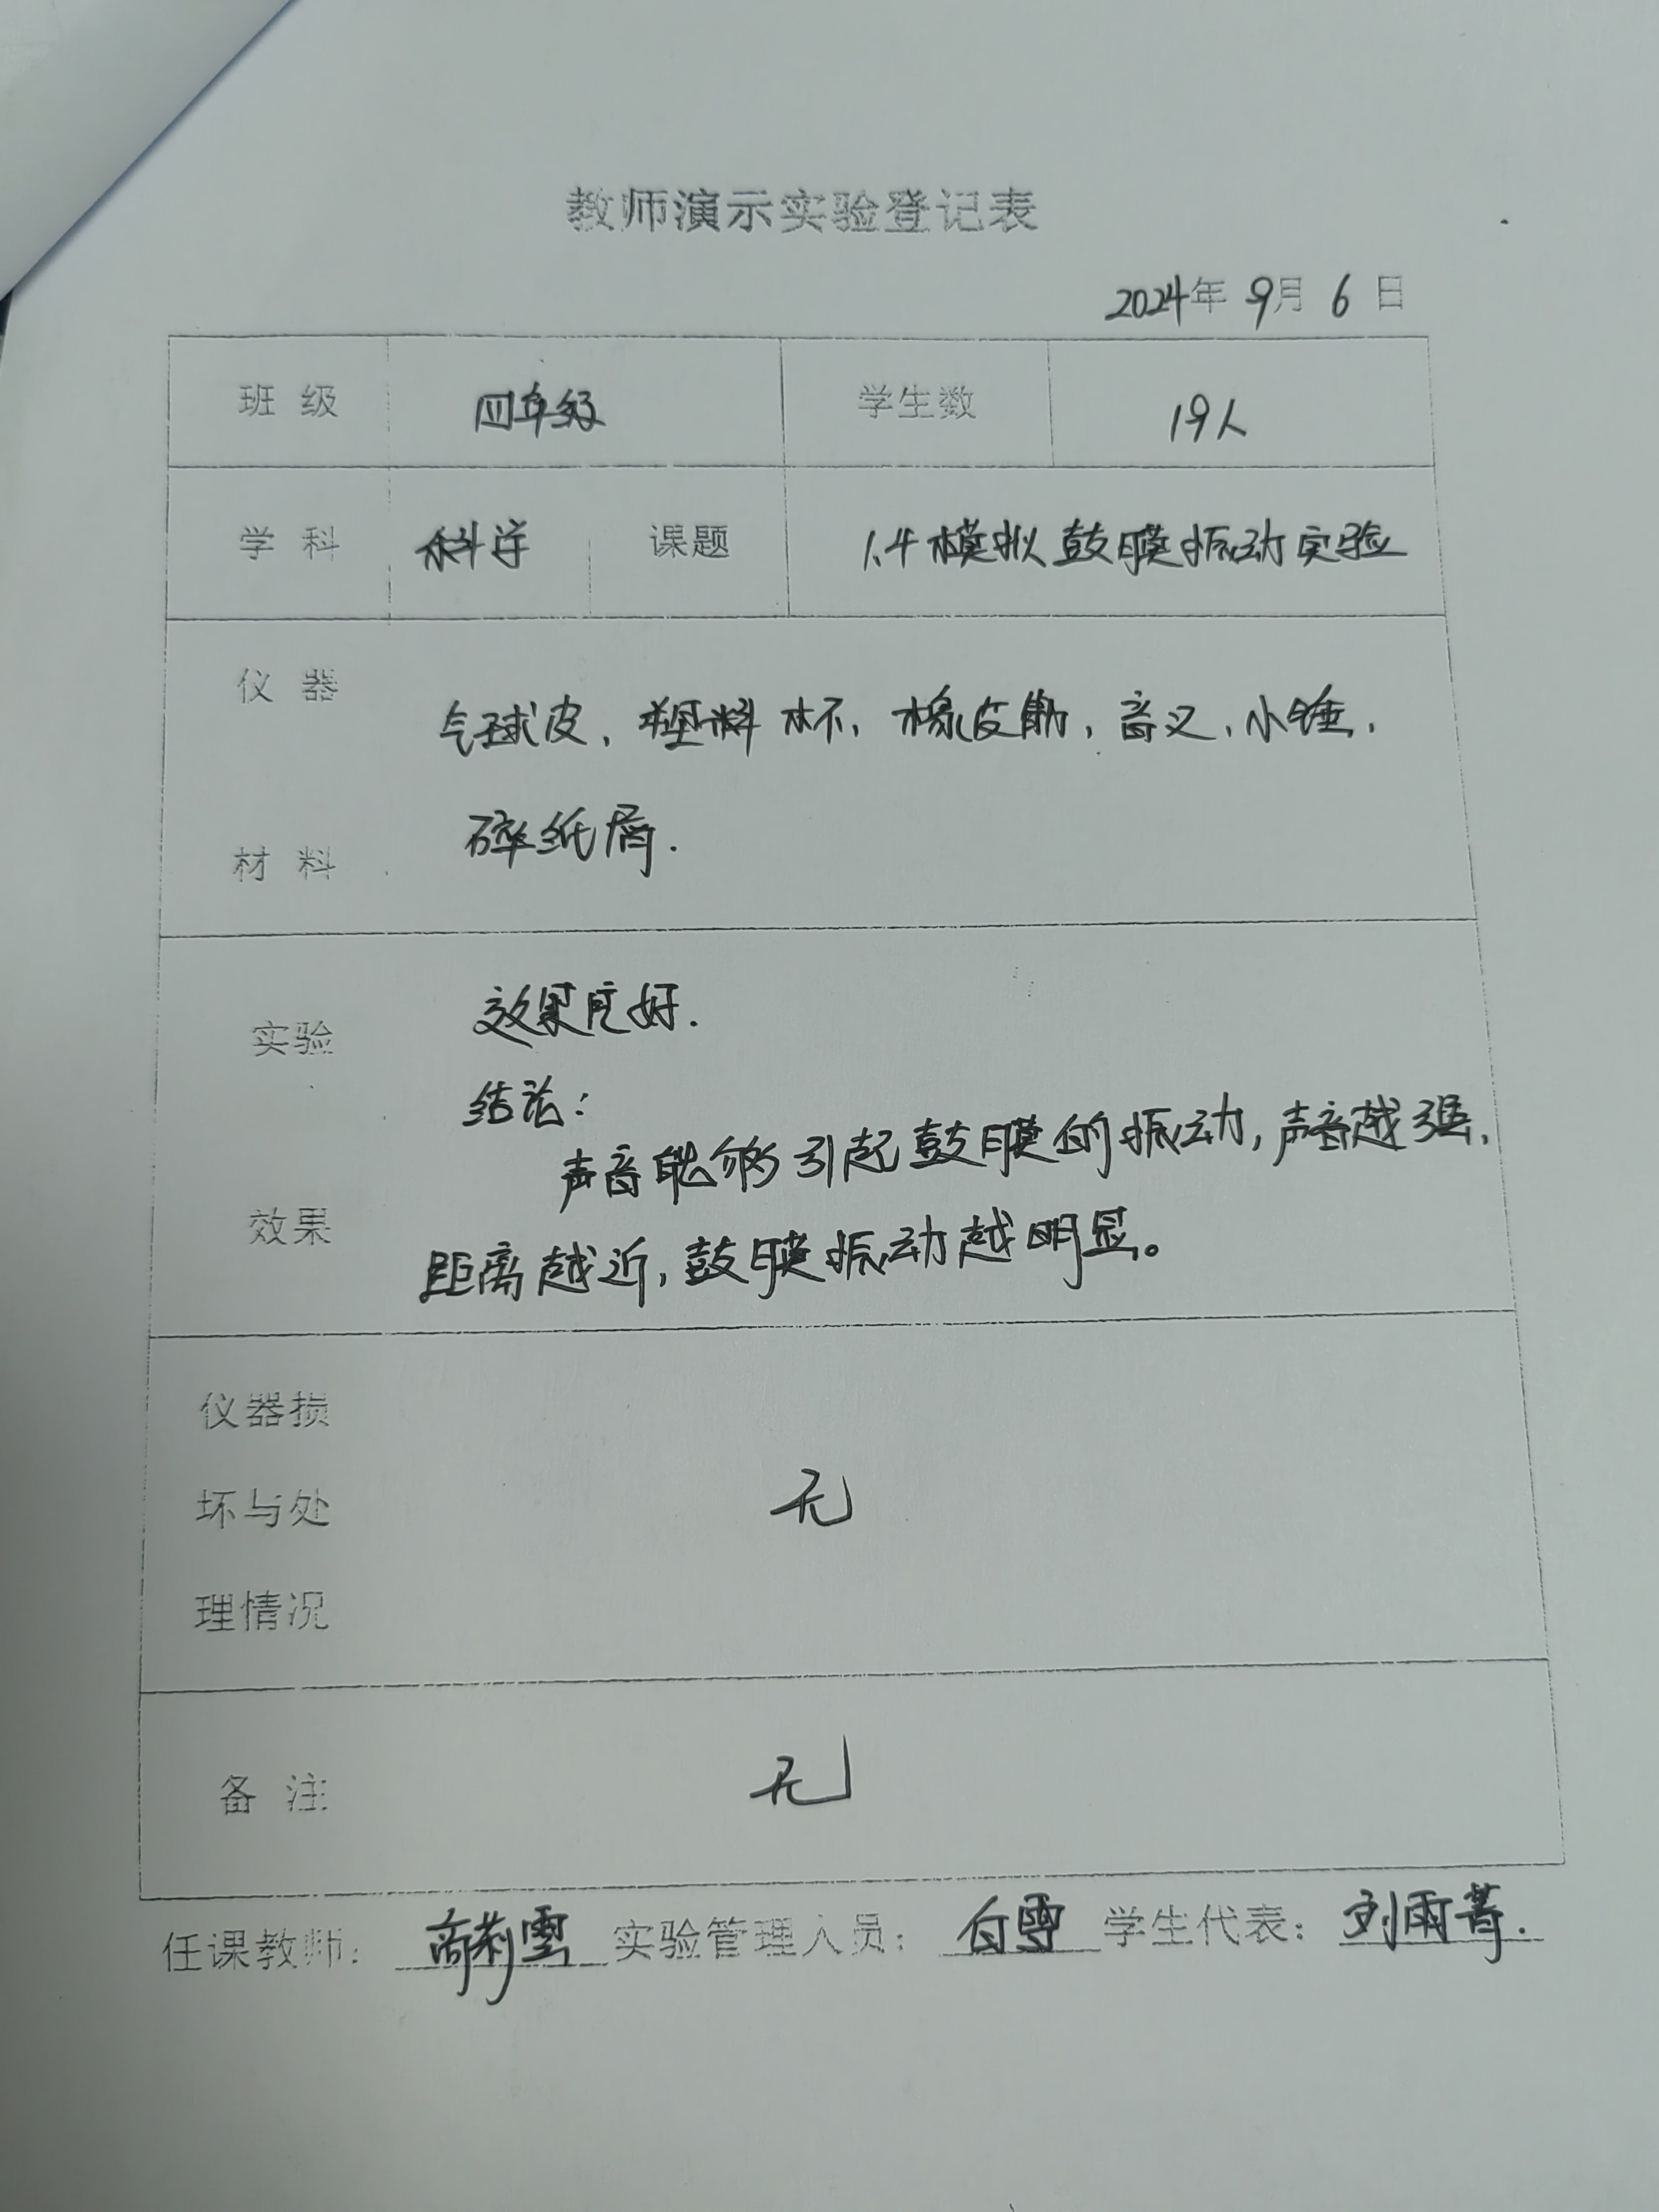 教师演示实验登记表
2024年 9月 6 日
班 级 四年级 学生数 19人
学 科 科学 课题 1.4模拟鼓膜振动实验
仪 器
气球皮，塑料杯，橡皮筋，音叉，小锤，
碎纸屑.
材 料
效果良好.
实验
结论：
声音能够引起鼓膜的振动，声音越强，
效果
距离越近，鼓膜振动越明显。
仪器损
坏与处 无
理情况
备 注 无
任课教师： 实验管理人员： 白雪 学生代表：刘雨菁.